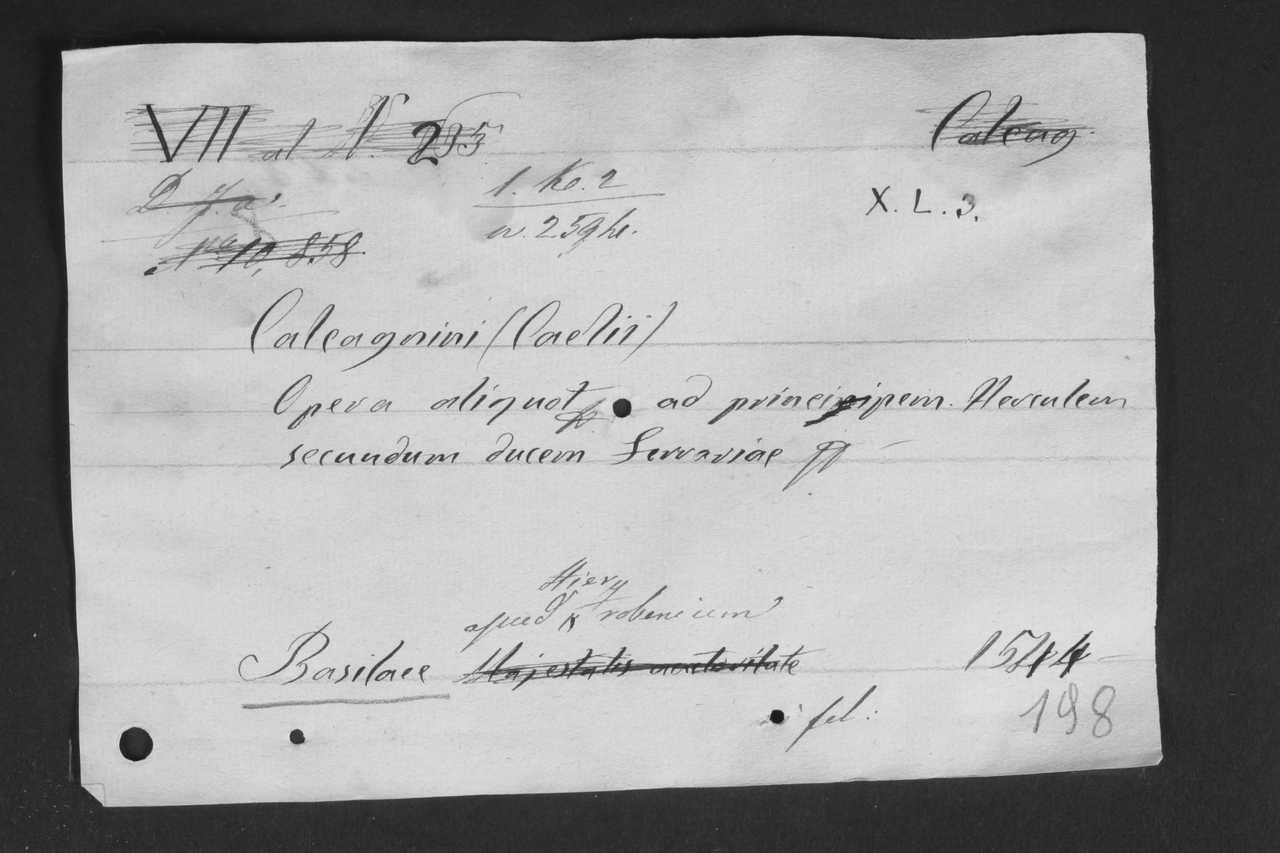 VII al N. 295
Calcag.
D J. a.
1. Ko. 2
X. L. 3.
10,858.
n. 259 h.
Calcagnini (Caelii)
Opera aliquot ad principem Herculem
secundum ducem Ferrariae
Hier
apud Frobenium
Basilaee Majestatis auctoritate 1544
fol:
198